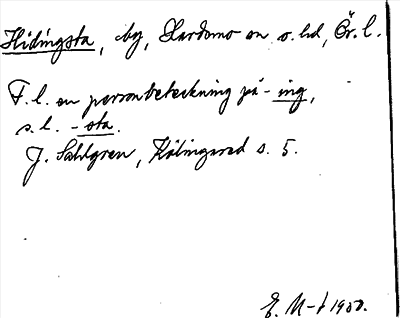 Hidingsta, by, Skardomo en s. hd, Ör. l.
F. l. en personbeteckning på -ing,
s. l. -sta.
J. Sahlgren, Kölingared s. 5.
E. M-t 1950.